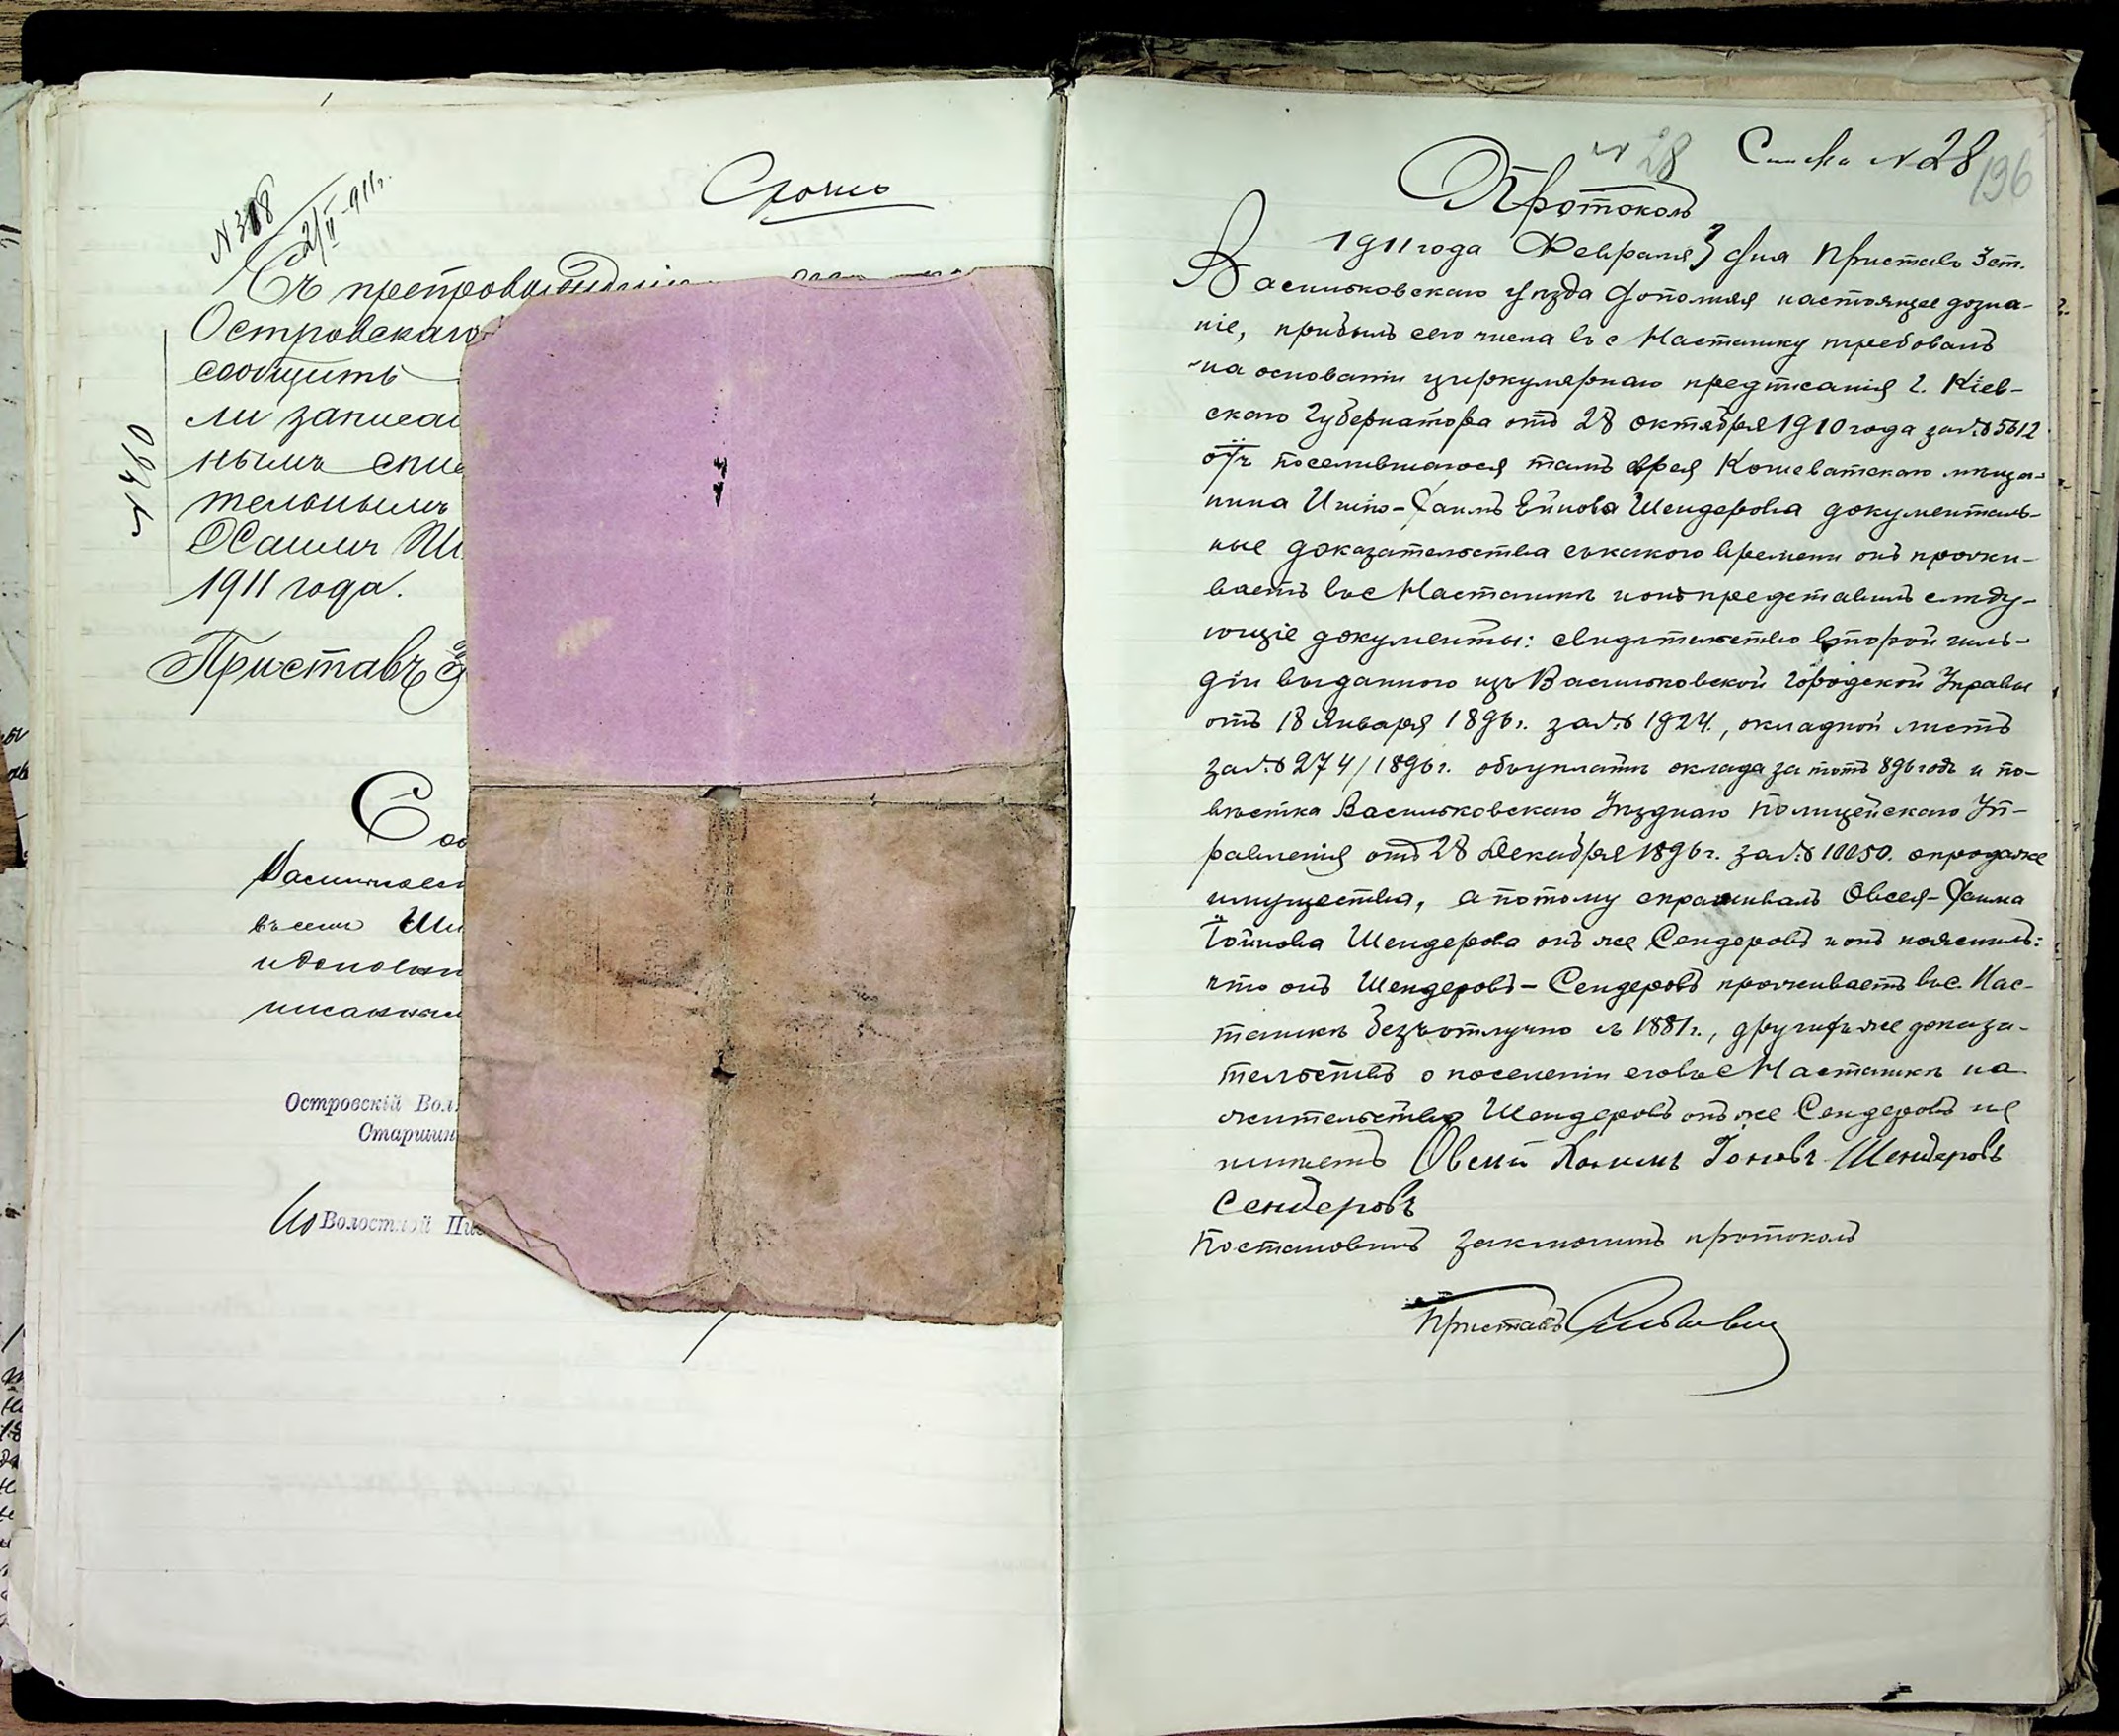 Срочно
N 318
2/II-911 г.
Съ препровожденіем
Островскаго
сообщить
ли записан
нымъ спис
тельнымъ
Хаимъ Ш
1911 года.
N 460
Приставъ 3
Соо
Васильковс
въ семъ
Островскій Вол
Старшин
Ио Волостной Пис
N 28
Списка N 28
196
Протоколъ
1911 года Февраля 3 дня Приставъ 3 ст.
Васильковскаго уѣзда дополняя настоящее дозна-
ніе, прибылъ сего числа въ с Насташку требовалъ
на основаніи циркулярнаго предписанія г. Кіев-
скаго Губернатора отъ 28 октября 1910 года за № 5612
отъ поселившагося тамъ еврея Кошеватскаго мѣща-
нина Хаимъ Шендерова документаль-
ные доказательства съ какого времени онъ прожи-
ваетъ въ с Насташкѣ и онъ представилъ слѣду-
ющіе документы: свидѣтельство второй гиль-
діи выданного изъ Васильковской Городской Управы
отъ 18 Января 1896 г. за № 1924., окладной листъ
за № 274/1896 г. объ уплатѣ оклада за тотъ 896 годъ и по-
вѣстка Васильковскаго Уѣзднаго Полицейскаго Уп-
равленія отъ 28 Декабря 1896 г. за № 10050. о продаже
имущества, а потому спрашивалъ Овсея-Хаима
Шендерова онъ же Сендеровъ и онъ пояснилъ:
что онъ Шендеровъ-Сендеровъ проживаетъ въ с. Нас-
ташкѣ безъотлучно съ 1881 г., другихъ же доказа-
тельствъ о поселеніи его въ с Насташкѣ на
жительство Шендеровъ онъ же Сендеровъ не
имѣетъ Овсій Хаимъ Шендеровъ
Сендеровъ
Постановилъ заключить протоколъ
Приставъ